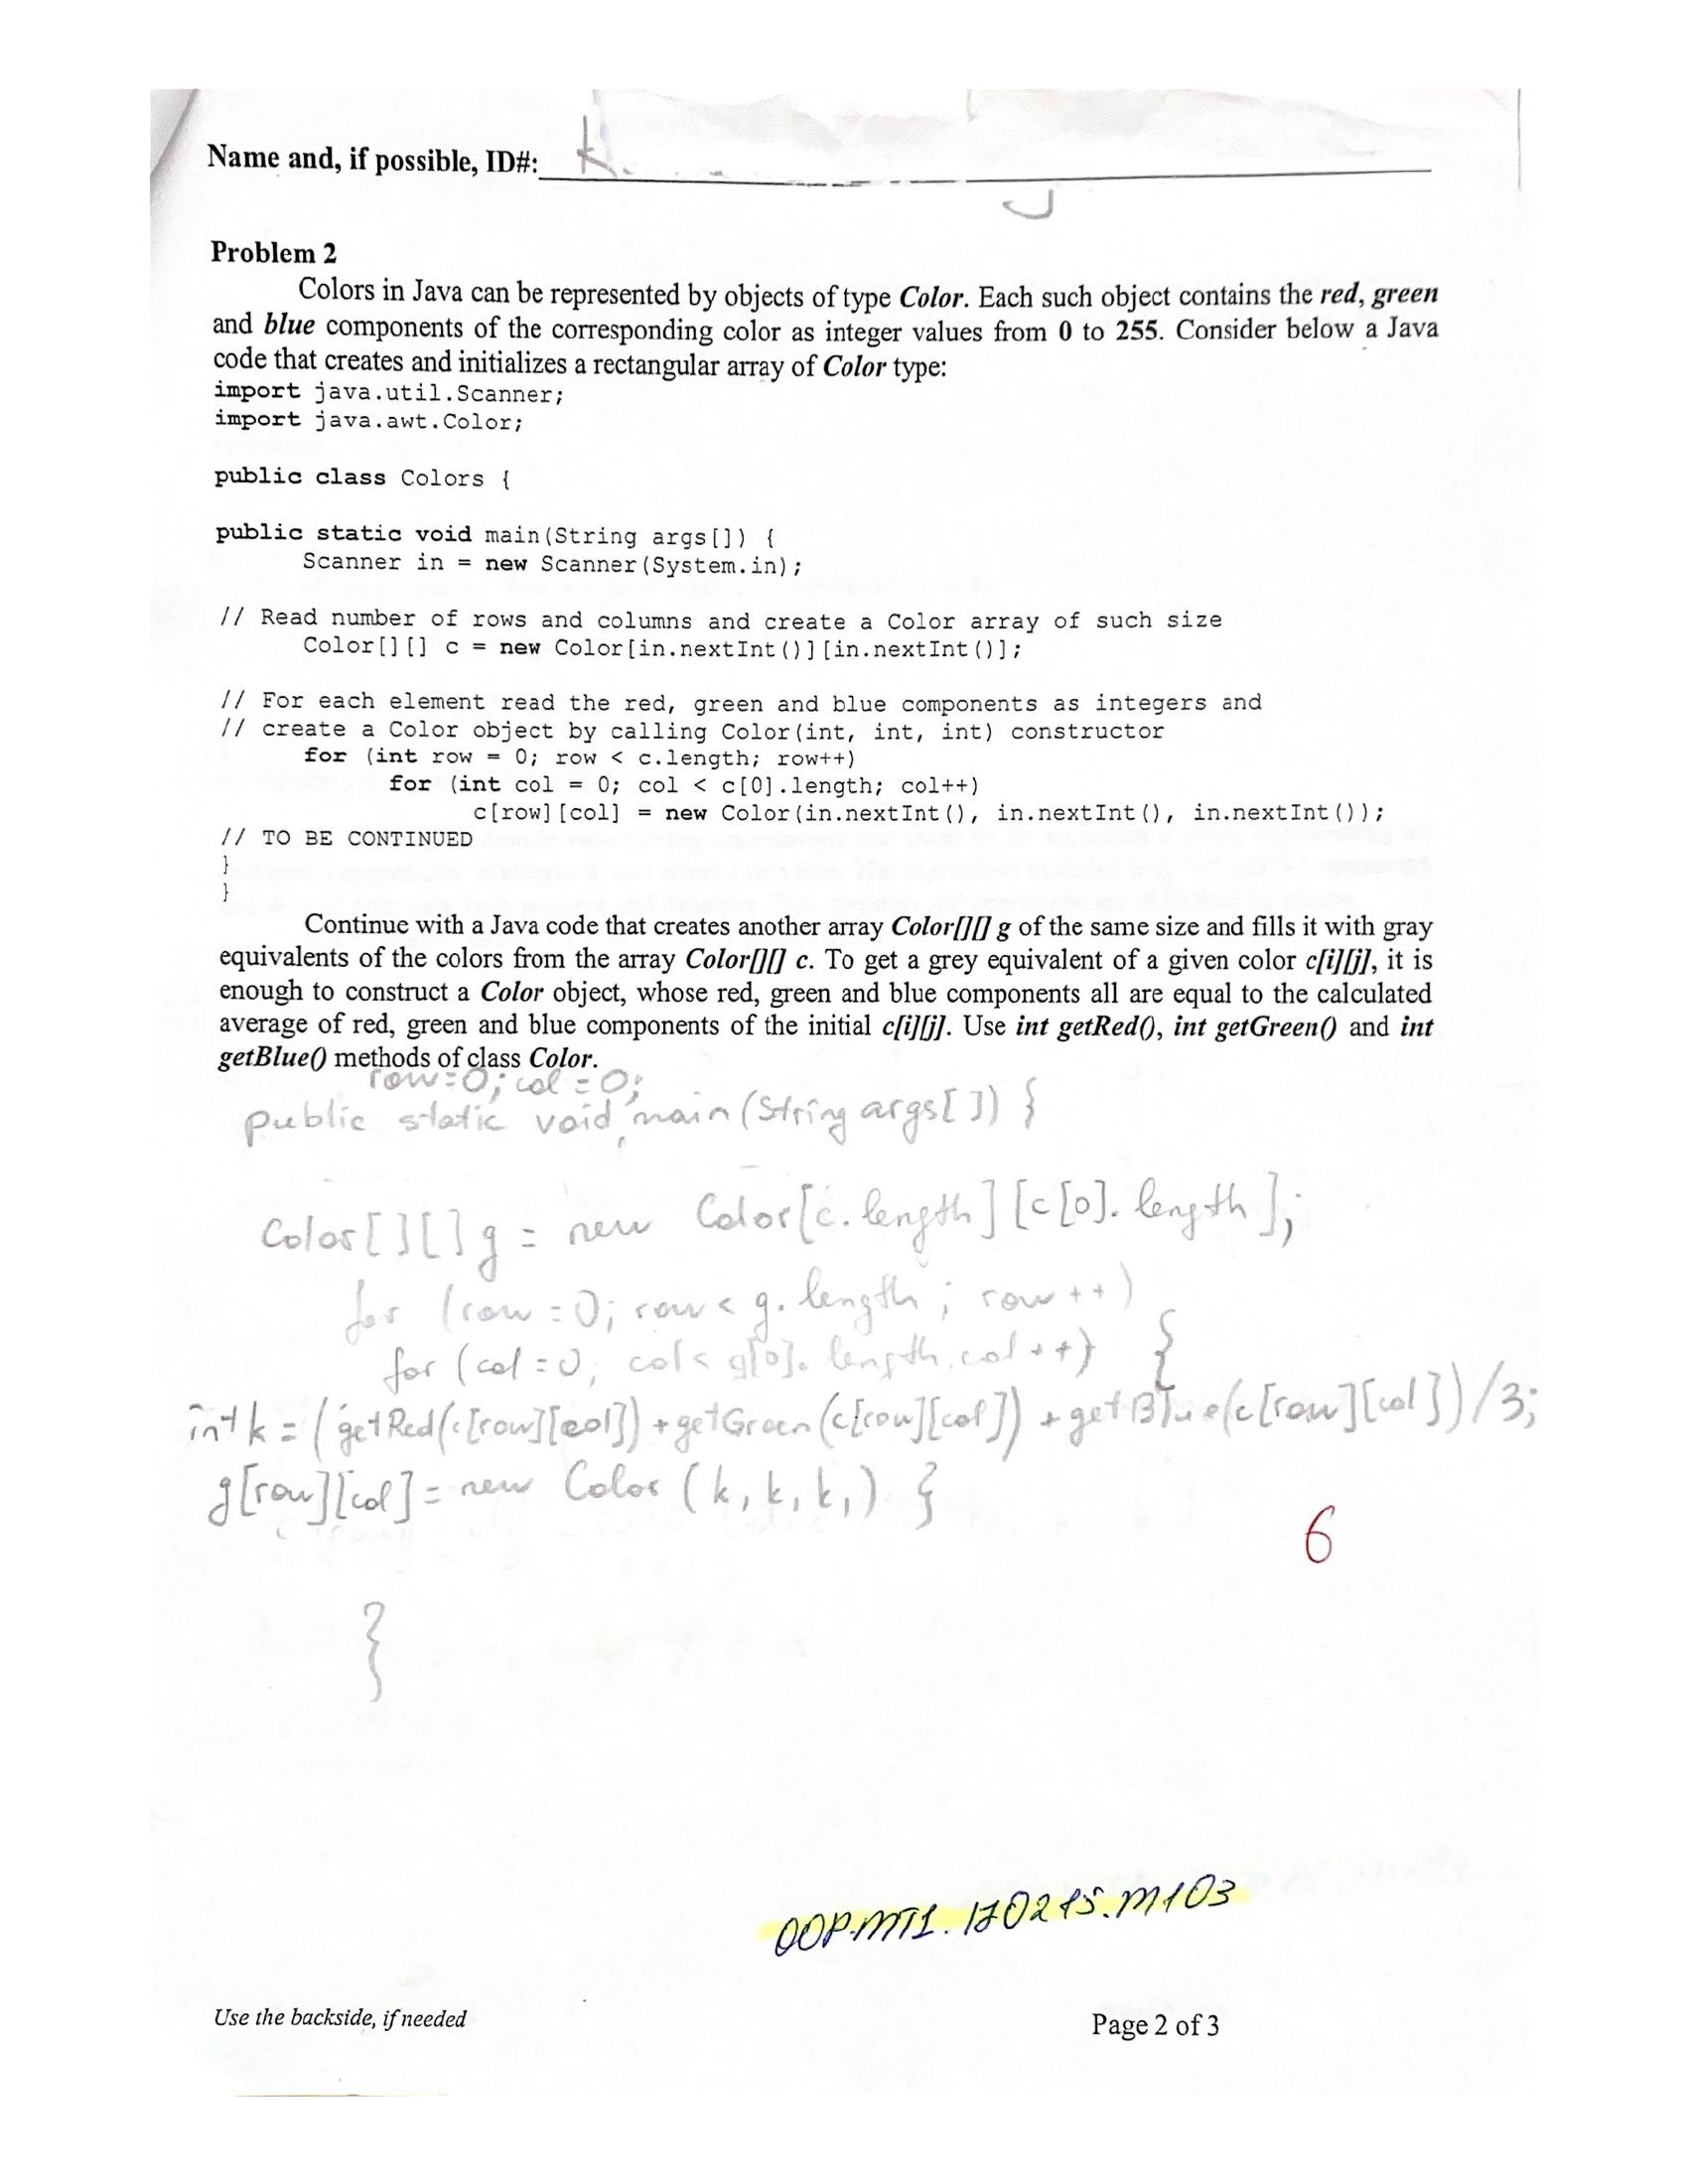 Name and, if possible, ID#:
Problem 2
Colors in Java can be represented by objects of type Color. Each such object contains the red, green
and blue components of the corresponding color as integer values from 0 to 255. Consider below a Java
code that creates and initializes a rectangular array of Color type:
import java.util.Scanner;
import java.awt.Color;
public class Colors {
public static void main(String args[]) {
Scanner in = new Scanner(System.in);
// Read number of rows and columns and create a Color array of such size
Color[][] c = new Color[in.nextInt()][in.nextInt()];
// For each element read the red, green and blue components as integers and
// create a Color object by calling Color(int, int, int) constructor
for (int row = 0; row < c.length; row++)
for (int col = 0; col < c[0].length; col++)
c[row][col] = new Color(in.nextInt(), in.nextInt(), in.nextInt());
// TO BE CONTINUED
}
}
Continue with a Java code that creates another array Color[][] g of the same size and fills it with gray
equivalents of the colors from the array Color[][] c. To get a grey equivalent of a given color c[i][j], it is
enough to construct a Color object, whose red, green and blue components all are equal to the calculated
average of red, green and blue components of the initial c[i][j]. Use int getRed(), int getGreen() and int
getBlue() methods of class Color.
row=0; col=0;
public static void main(String args[]) {
Color[][] g = new Color[c.length][c[0].length];
for (row=0; row < g.length; row++)
for (col=0; col < g[0].length, col++) {
int k = (getRed(c[row][col]) + getGreen(c[row][col]) + getBlue(c[row][col]))/3;
g[row][col] = new Color (k, k, k,) }
6
}
OOP.MT1.170215.M103
Use the backside, if needed
Page 2 of 3